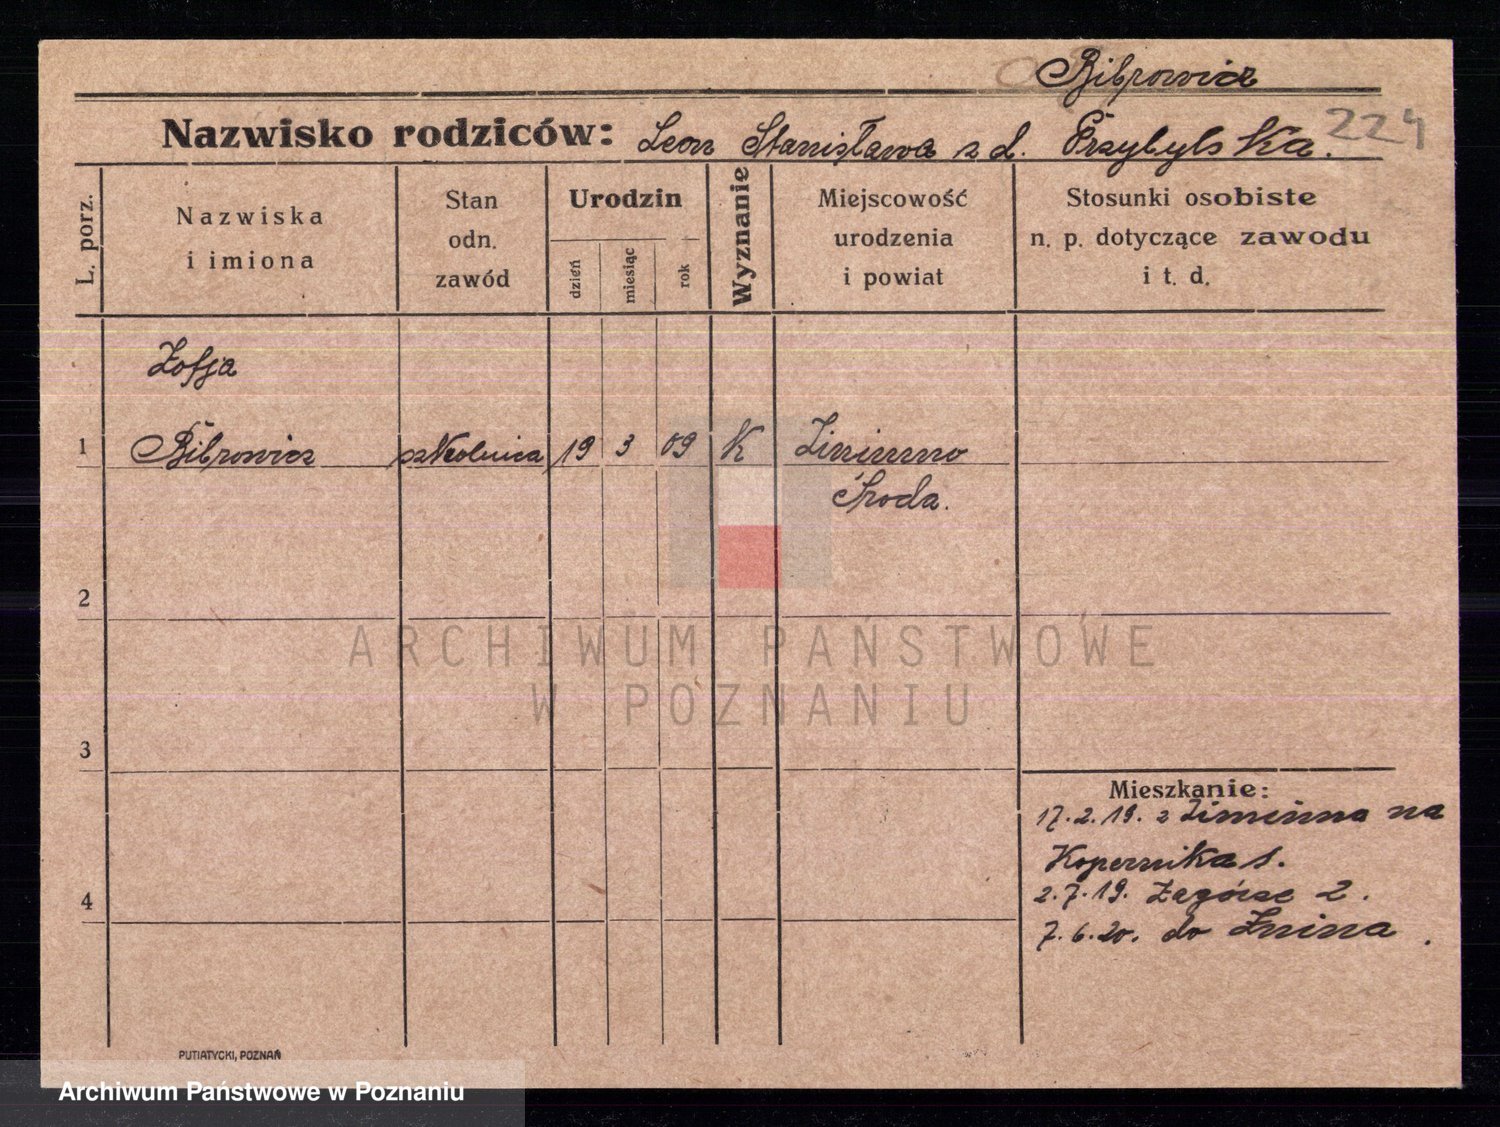 Bibrowicz
Nazwisko rodziców: Leon Stanisława z d. Przybylska. 224
L. porz.
Nazwiska
i imiona
Stan
odn.
zawód
Urodzin
dzień
miesiąc
rok
Wyznanie
Miejscowość
urodzenia
i powiat
Stosunki osobiste
n. p. dotyczące zawodu
i t. d.
Zofja
1 Bibrowicz szkolnica 19 3 09 K Zimmno
Środa.
2
ARCHIWUM PAŃSTWOWE
W POZNANIU
3
Mieszkanie:
17.2.19. z Zimmna na
Kopernika 1.
4
2.7.19. Zagórze 2.
7.6.20. do Żnina.
PUTIATYCKI, POZNAŃ
Archiwum Państwowe w Poznaniu